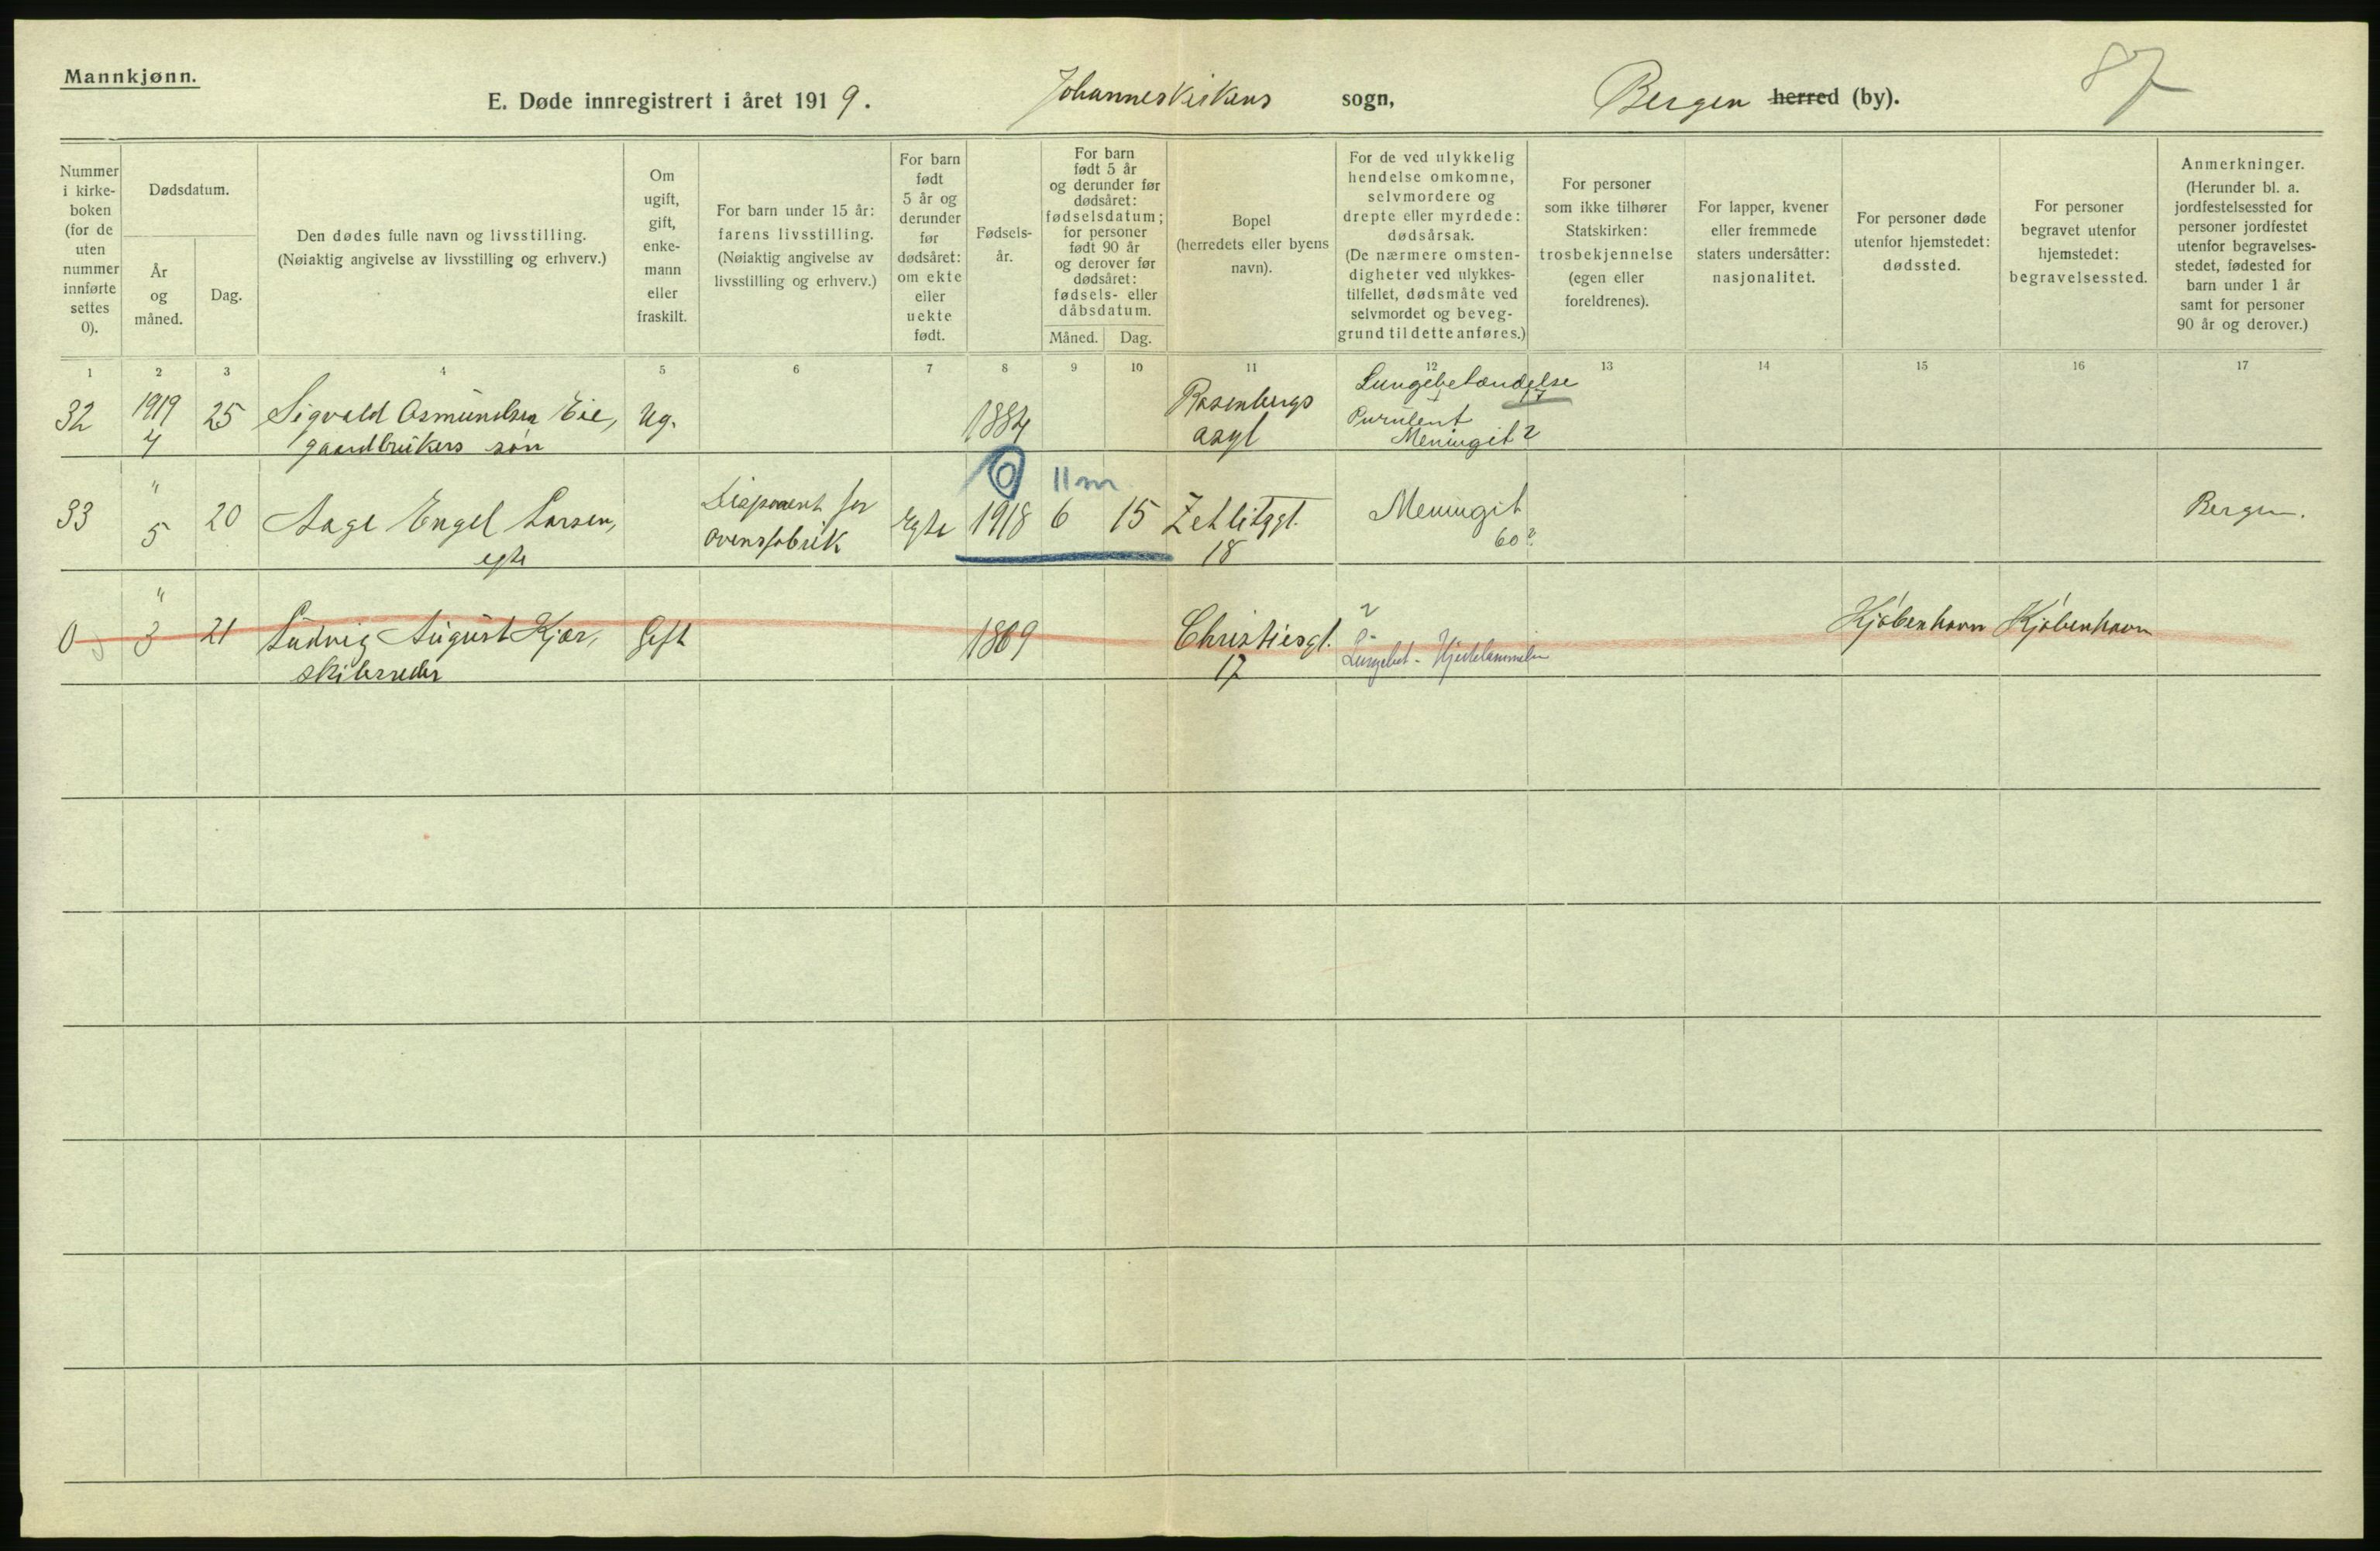 Mannkjønn.
E. Døde innregistrert i året 1919. Johanneskirkens sogn, Bergen herred (by). 87
Nummer
i kirke-
boken
(for de
uten
nummer
innførte
settes
0).
Dødsdatum.
År
og
måned.
Dag.
Den dødes fulle navn og livsstilling.
(Nøiaktig angivelse av livsstilling og erhverv.)
Om
ugift,
gift,
enke-
mann
eller
fraskilt.
For barn under 15 år:
farens livsstilling.
(Nøiaktig angivelse av
livsstilling og erhverv.)
For barn
født
5 år og
derunder
før
dødsåret:
om ekte
eller
uekte
født.
Fødsels-
år.
For barn
født 5 år
og derunder før
dødsåret:
fødselsdatum;
for personer
født 90 år
og derover før
dødsåret:
fødsels- eller
dåbsdatum.
Måned. Dag.
Bopel
(herredets eller byens
navn).
For de ved ulykkelig
hendelse omkomne,
selvmordere og
drepte eller myrdede:
dødsårsak.
(De nærmere omsten-
digheter ved ulykkes-
tilfellet, dødsmåte ved
selvmordet og beveg-
grund til dette anføres.)
For personer
som ikke tilhører
Statskirken:
trosbekjennelse
(egen eller
foreldrenes).
For lapper, kvener
eller fremmede
staters undersåtter:
nasjonalitet.
For personer døde
utenfor hjemstedet:
dødssted.
For personer
begravet utenfor
hjemstedet:
begravelsessted.
Anmerkninger.
(Herunder bl. a.
jordfestelsessted for
personer jordfestet
utenfor begravelses-
stedet, fødested for
barn under 1 år
samt for personer
90 år og derover.)
1 2 3 4 5 6 7 8 9 10 11 12 13 14 15 16 17
32 1919 4 25 Sigvald Osmundsen Eie, Ug. 1884 Rosenbergs Lungebetændelse
gaardbrukers søn asyl Purulent
Meningit 2
0 11 m
33 " 5 20 Aage Engel Larsen, Disponent for Egte 1918 6 15 Zetlitzgt. Meningit Bergen.
egte ovensfabrik 18 60?
0 " 3 21 Ludvig August Kjær, Gift 1869 Christiesgt. 2 Kjøbenhavn Kjøbenhavn
skibsreder 17 Lungebet-